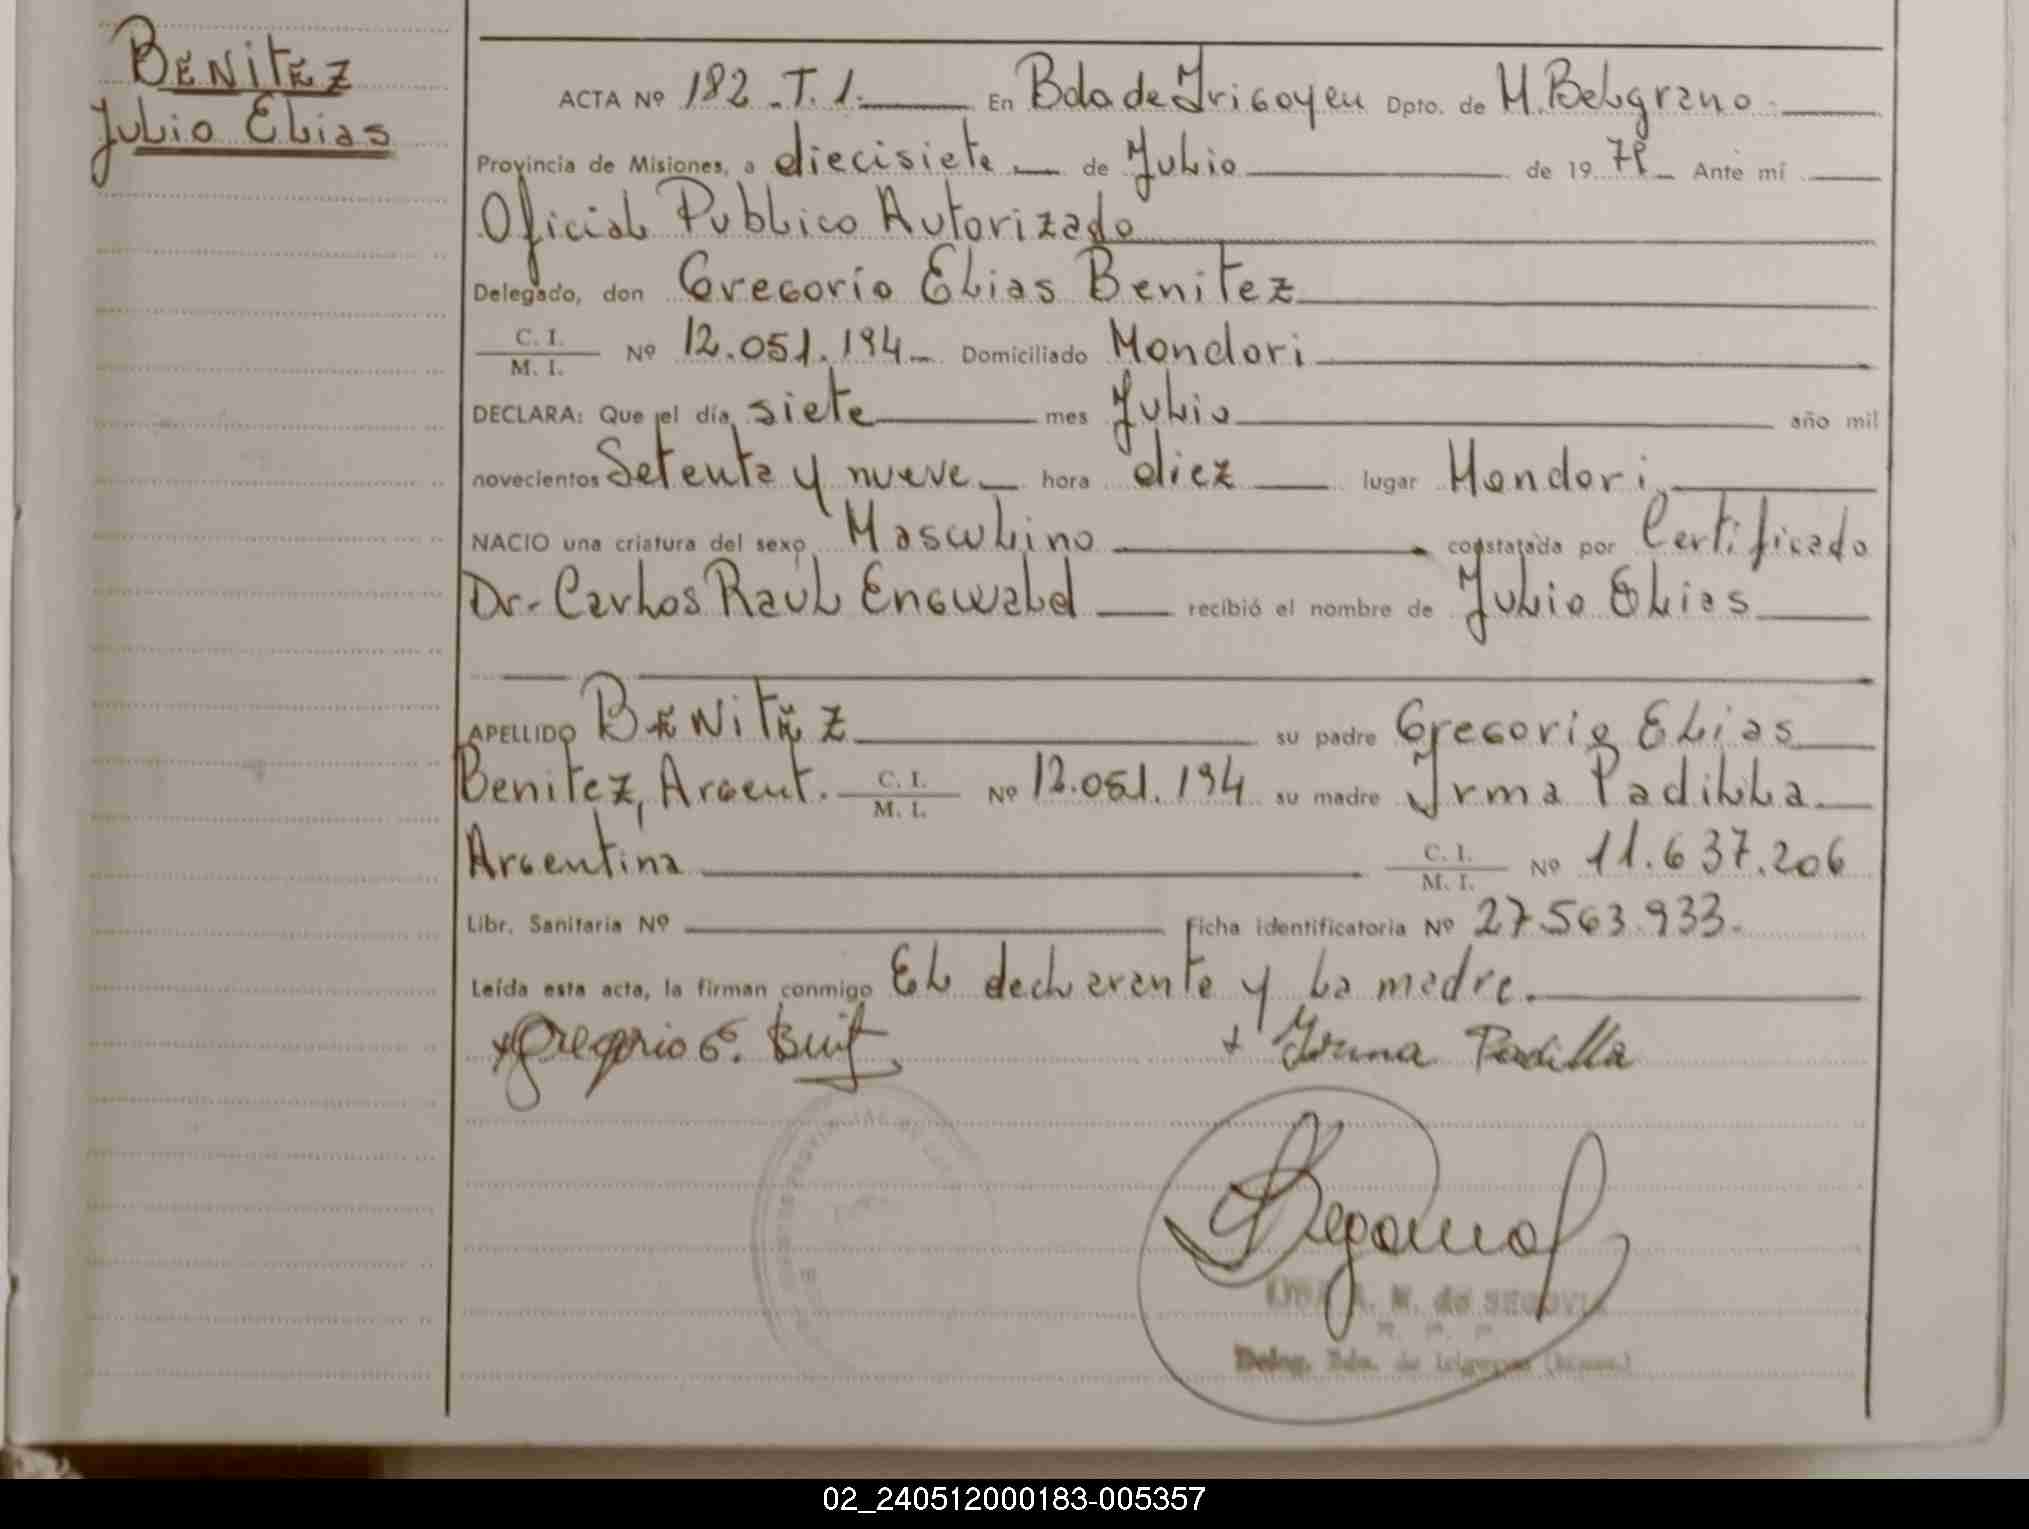 BENITEZ
Julio Elias
ACTA Nº 182 - T. 1. En Bdo de Irigoyen Dpto. de M. Belgrano.
Provincia de Misiones, a diecisiete de Julio de 1979 Ante mí
Oficial Publico Autorizado
Delegado, don Gregorio Elias Benitez
C. I. / M. I. Nº 12.051.194 Domiciliado Mondori
DECLARA: Que el día siete mes Julio año mil
novecientos Setenta y nueve hora diez lugar Mondori
NACIO una criatura del sexo Masculino constatada por Certificado
Dr. Carlos Raul Engwald recibió el nombre de Julio Elias
APELLIDO BENITEZ su padre Gregorio Elias
Benitez, Argent. C. I. / M. I. Nº 12.051.194 su madre Irma Padilla
Argentina C. I. / M. I. Nº 11.637.206
Libr. Sanitaria Nº Ficha identificatoria Nº 27.563.933.
Leída esta acta, la firman conmigo El declarante y la madre.
Gregorio E. Irma Padilla
de SEGOVIA
Deleg. Bdo. de Irigoyen
02_240512000183-005357